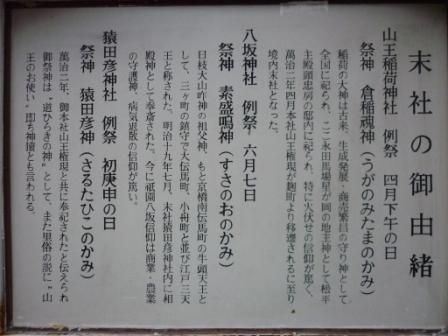 末社の御由緒
山王稲荷神社　例祭　四月下午の日
祭神　倉稲魂神（うがのみたまのかみ）
稲荷の大神は古来、生成発展・商売繁昌の守り神として
全国に祀られ、ここ永田馬場星が岡の地主神として松平
主殿頭忠房の邸内に祀られ、特に火伏せの信仰が篤く、
萬治二年四月本社山王権現が麹町より移遷されるに至り
境内末社となった。
八坂神社　例祭　六月七日
祭神　素盛嗚神（すさのおのかみ）
日枝大山咋神の祖父神、もと京橋南伝馬町の牛頭天王と
して、三ヶ町の鎮守で大伝馬町、小舟町と並び江戸三天
王と称された。明治十九年七月、末社猿田彦神社内に相
殿神として奉斎された。今に祇園八坂信仰は商業・農業
の守護神、病気退散の信仰が篤い。
猿田彦神社　例祭　初庚申の日
祭神　猿田彦神（さるたひこのかみ）
萬治二年、御本社山王権現と共に奉祀されたと伝えられ
御祭神は"道ひらきの神"として、また里俗の説に"山
王のお使い"即ち神猿とも言われる。